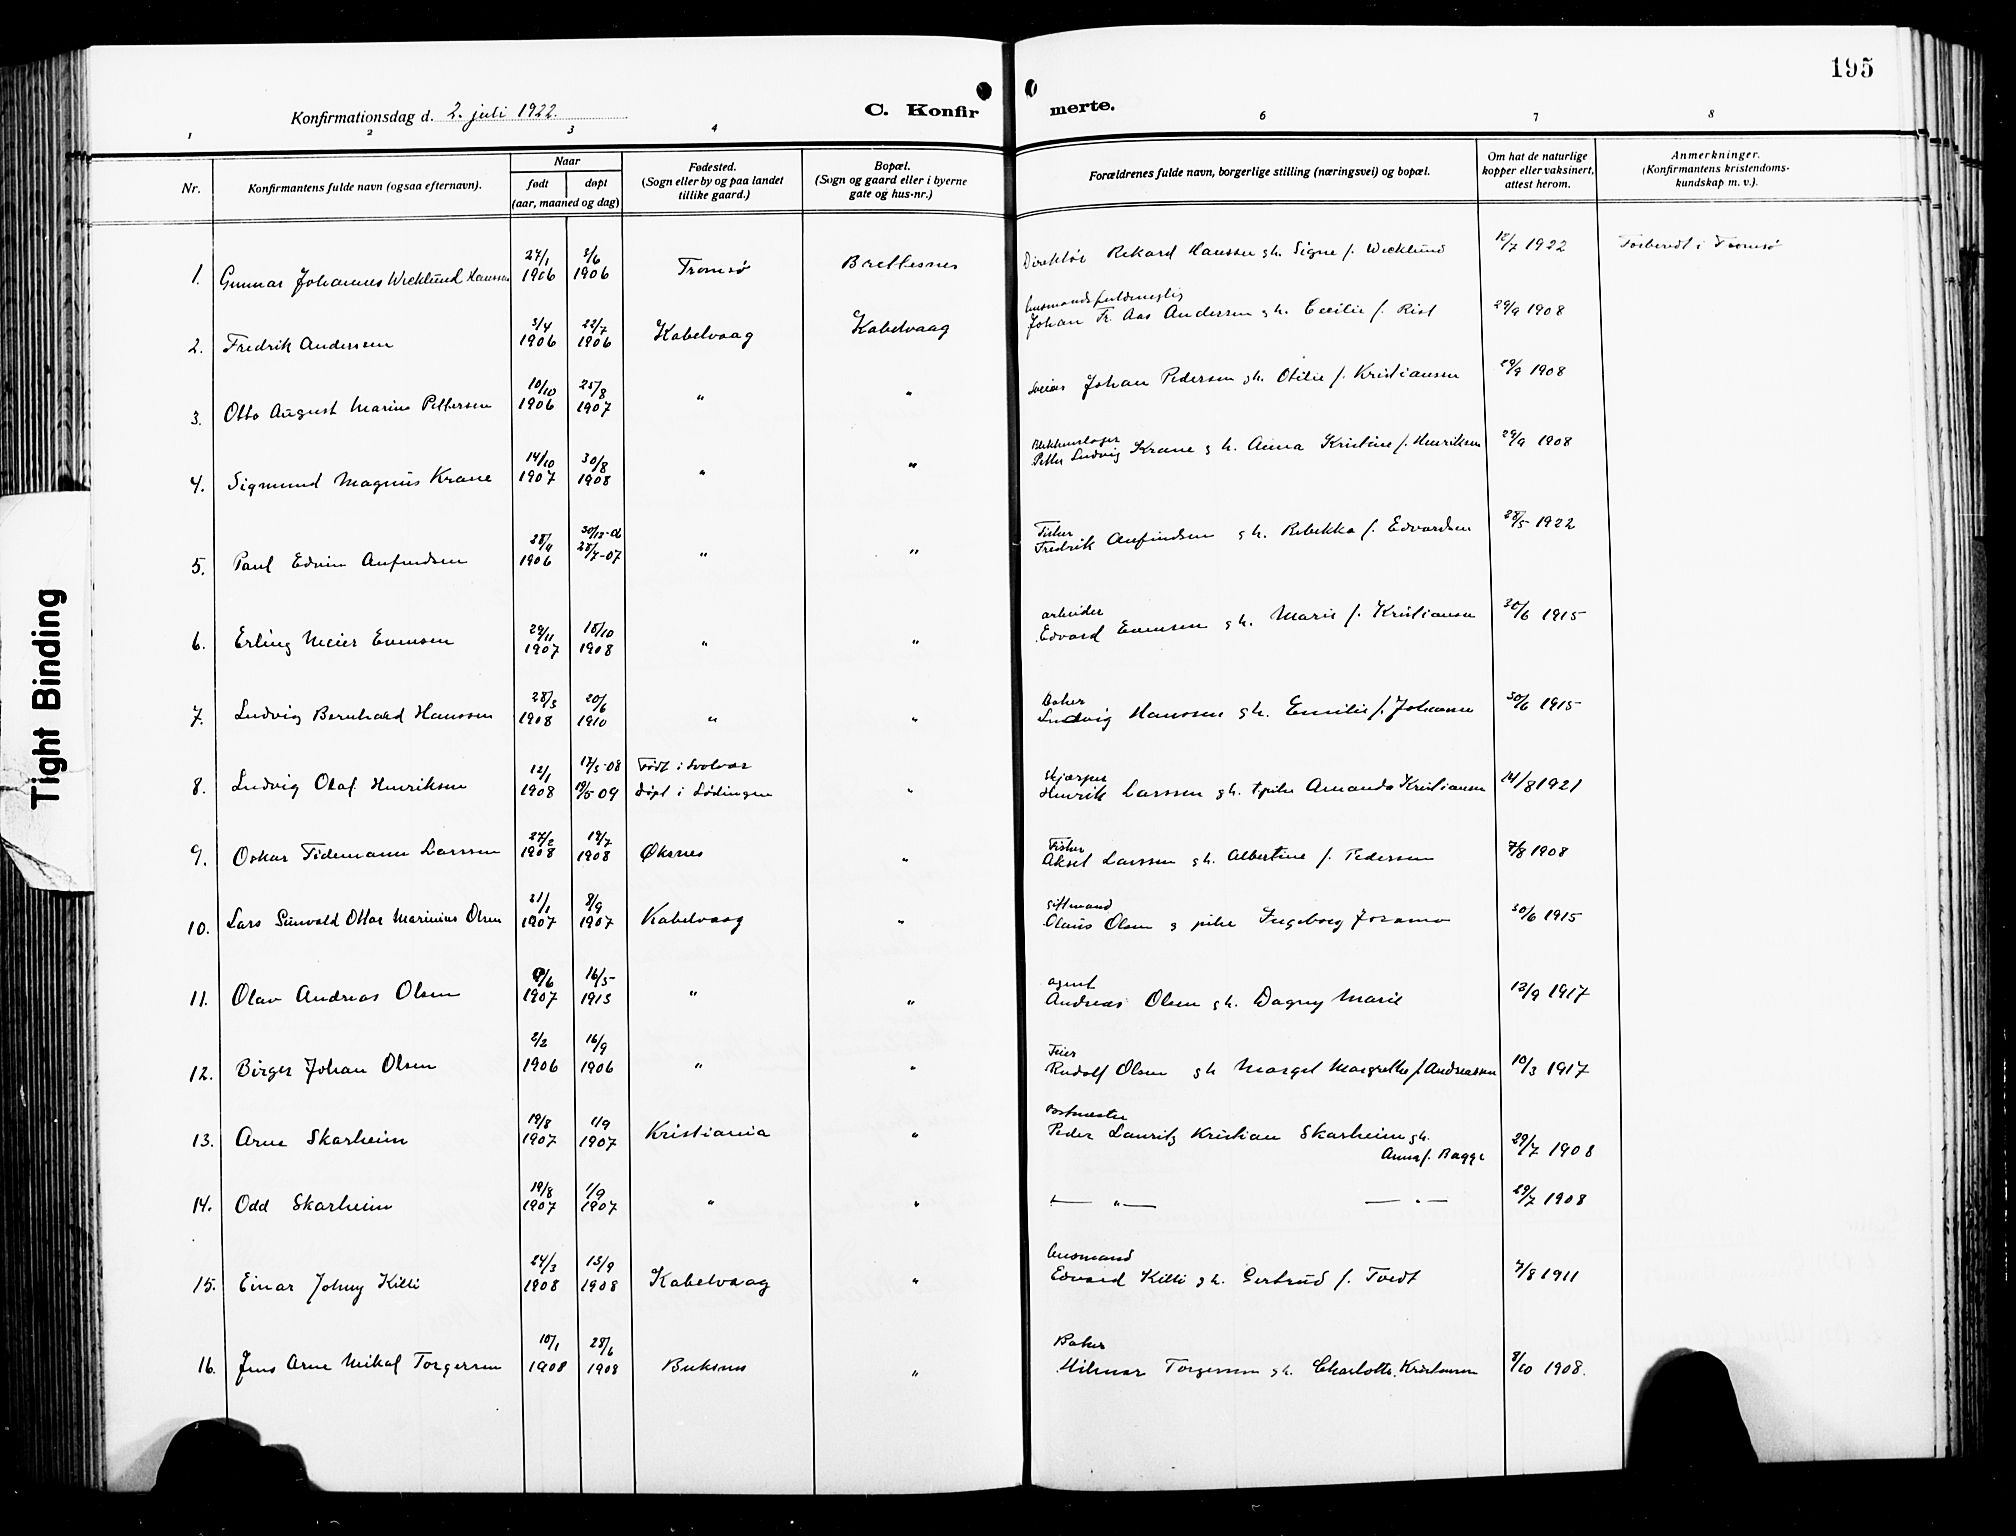 195
Konfirmationsdag d. 2. juli 1922.
C. Konfirmerte.
1 2 3 4 6 7 8
Nr.
Konfirmantens fulde navn (ogsaa efternavn).
Naar
født døpt
(aar, maaned og dag)
Fødested.
(Sogn eller by og paa landet
tillike gaard.)
Bopæl.
(Sogn og gaard eller i byerne
gate og hus-nr.)
Forældrenes fulde navn, borgerlige stilling (næringsvei) og bopæl.
Om hat de naturlige
kopper eller vaksinert,
attest herom.
Anmerkninger.
(Konfirmantens kristendoms-
kundskap m. v.).
1. Gunnar Johannes Wecklund Hanssen 1906 2/6 1906 Tromsø Brettesnes Direktør Rikard Hanssen g h. Signe f. Wecklund 12/7 1922 Forberedt i Tromsø
2. Fredrik Anderssen 3/4 1906 22/7 1906 Kabelvaag Kabelvaag Johan Fr. Aas Anderssen g h. Cecilie f. Rist 29/9 1908
3. Otto August Marius Pettersen 10/10 1906 25/8 1907 " " Johan Pedersen g h. Otilie f. Kristiansen 29/9 1908
4. Sigmund Magnus Krane 14/10 1907 30/8 1908 " " Blikkenslager
Petter Ludvig Krane g h. Anna Kristine f. Henriksen 29/9 1908
5. Paul Edvin Anfindsen 28/4 1906 28/7-07 " " Fisker
Fredrik Anfindsen g h. Rebekka f. Edvardsen 28/5 1922
6. Erling Meier Evensen 29/11 1907 18/10 1908 " " arbeider
Edvard Evensen g h. Marie f. Kristiansen 30/6 1915
7. Ludvig Bernhard Hanssen 28/3 1908 20/6 1910 " " Baker
Ludvig Hanssen g h. Emilie f. Johansen 30/6 1915
8. Ludvig Olaf Henriksen 12/1 1908 17/5-08 Født i Svolvær
19/5 09 døpt i Lødingen " Skjærper
Henrik Larssen g h. pike Amanda Kristiansen 14/8 1921
9. Oskar Tidemann Larssen 27/2 1908 19/7 1908 Øksnes " Fisker
Aksel Larssen g h. Albertine f. Pedersen 7/8 1908
10. Lars Sünvald Ottar Marinius Olsen 31/1 1907 8/9 1907 Kabelvaag " Giftmand
Olaus Olsen g pike Ingeborg 30/6 1915
11. Olav Andreas Olsen 1907 16/5 1913 " " agent
Andreas Olsen g h. Dagny Marie 13/9 1917
12. Birger Johan Olsen 2/2 1906 16/9 1906 " " Feier
Rudolf Olsen g h Marget Margrethe f. Andreassen 10/3 1917
13. Arne Skarheim 19/8 1907 1/9 1907 Kristiania " Postmester
Peder Lauritz Kristian Skarheim g h.
Anna f. Bagge 29/7 1908
14. Odd Skarheim 19/8 1907 1/9 1907 " " — " — — " — 29/7 1908
15. Einar Johny Killi 24/3 1908 13/9 1908 Kabelvaag " husmand
Edvard Killi g h. Gertrud f. Tvedt 7/8 1911
16. Jens Arne Mikal Torgersen 10/1 1908 28/6 1908 Buksnes " Baker
Hilmar Torgersen g h. Charlotte Kristensen 8/10 1908.
Tight Binding